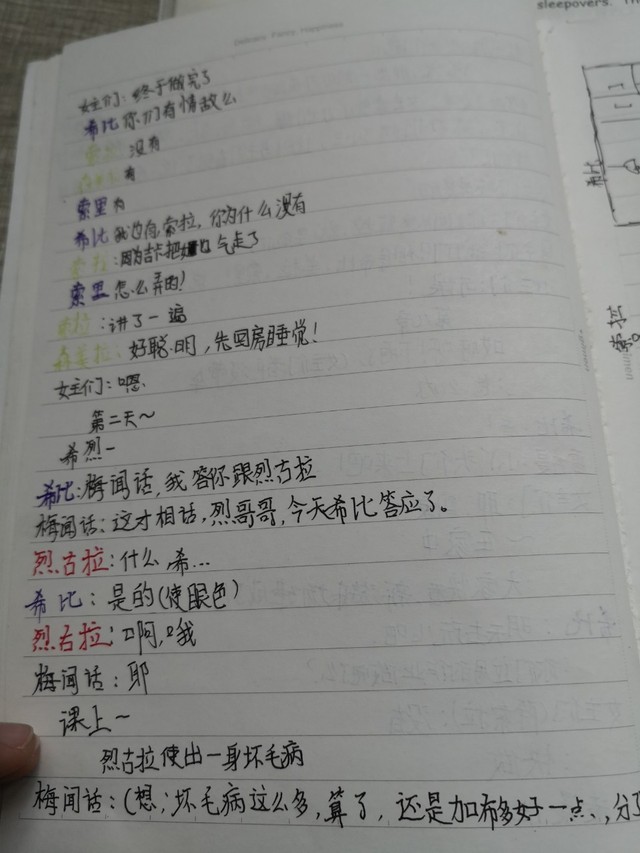 sleepovers. Th
Delicate Fancy Happiness
女主们：终于做完了
希比 你们有情敌么
没有
有
索里 有
希比 我也有，索拉，你为什么没有
索拉：因为吉卡把她也气走了
索里 怎么弄的！
索拉：讲了一遍
森姜拉：好聪明，先回房睡觉！
女主们：嗯
第二天～
希烈一
希比：梅闻话，我答你跟烈古拉
梅闻话：这才相话，烈哥哥，今天希比答应了。
烈古拉：什么，希...
希比：是的(使眼色)
烈古拉：啊，哦
梅闻话：耶
课上～
烈古拉使出一身坏毛病
梅闻话：(想；坏毛病这么多，算了，还是加布多好一点、，分了
希比
索拉